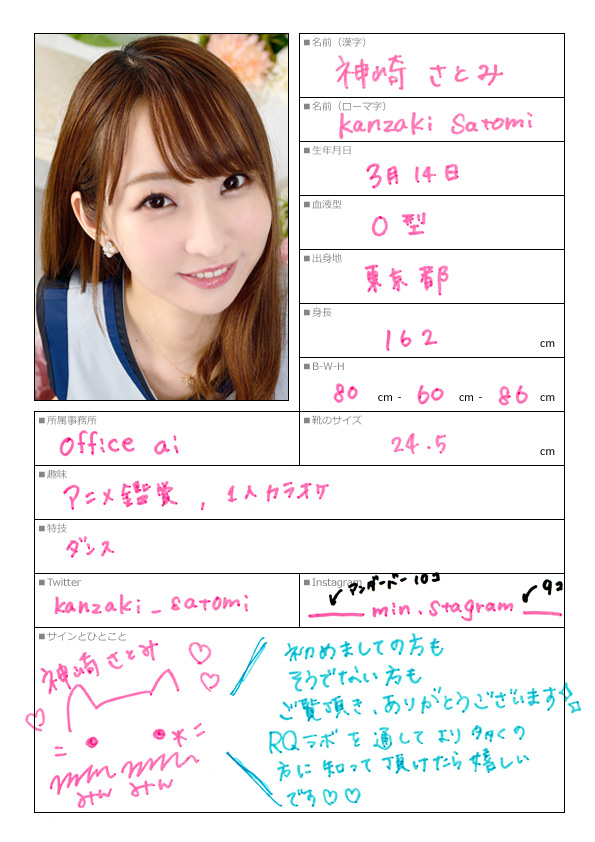 ■名前（漢字）
神崎 さとみ
■名前（ローマ字）
kanzaki Satomi
■生年月日
3月 14日
■血液型
O 型
■出身地
東京都
■身長
162 cm
■B-W-H
80 cm - 60 cm - 86 cm
■所属事務所
office ai
■靴のサイズ
24.5 cm
■趣味
アニメ鑑賞 , 1人カラオケ
■特技
ダンス
■Twitter
kanzaki_satomi
■Instagram
アンダーバー 10コ
9コ
__________min.stagram_________
■サインとひとこと
神崎さとみ
みん みん
初めましての方も
そうでない方も
ご覧頂き、ありがとうございます
RQラボを通してより多くの
方に知って頂けたら嬉しい
です♡♡